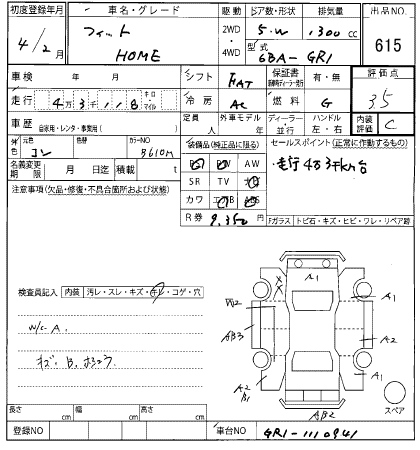 初度登録年月 車名・グレード 駆動 ドア数・形状 排気量 出品NO
4/2月 フィット 2WD 5.W 1,300 cc 615
HOME 4WD 型式 6BA-GR1
車検 年 月 シフト FAT 保証書 有・無 評価点
走行 4万3千118 キロ マイル 冷房 AC 燃料 G 3.5
車歴 自家用・レンタ・事業用( ) 定員 人 外車モデル 年 ディーラー・並行 ハンドル 左・右 内装評価 C
外色 元色 色替 カラーNO 装備品(純正品に限る) セールスポイント(正常に作動するもの)
B610M AW 走行4万3千km台
名義変更期限 月 日迄 積載 t SR TV
注意事項(欠品・修復・不具合箇所および状態) カワ ABS
R券 9,350 Fガラス トビ石・キズ・ヒビ・ワレ・リペア跡
A1
検査員記入 内装 汚レ・スレ・キズ・キレ・コゲ・穴 A1
W/C A. AB3 A2
キズ・B. A2 B1 A1
AB2 スペア
長さ cm 幅 cm 高さ cm
登録NO 車台NO GR1-1110941